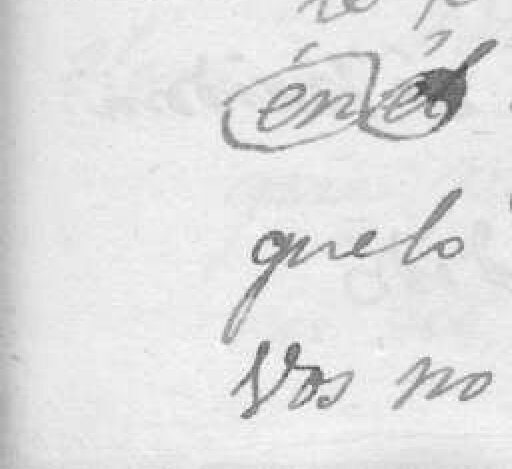 én él
quelo
Vos no